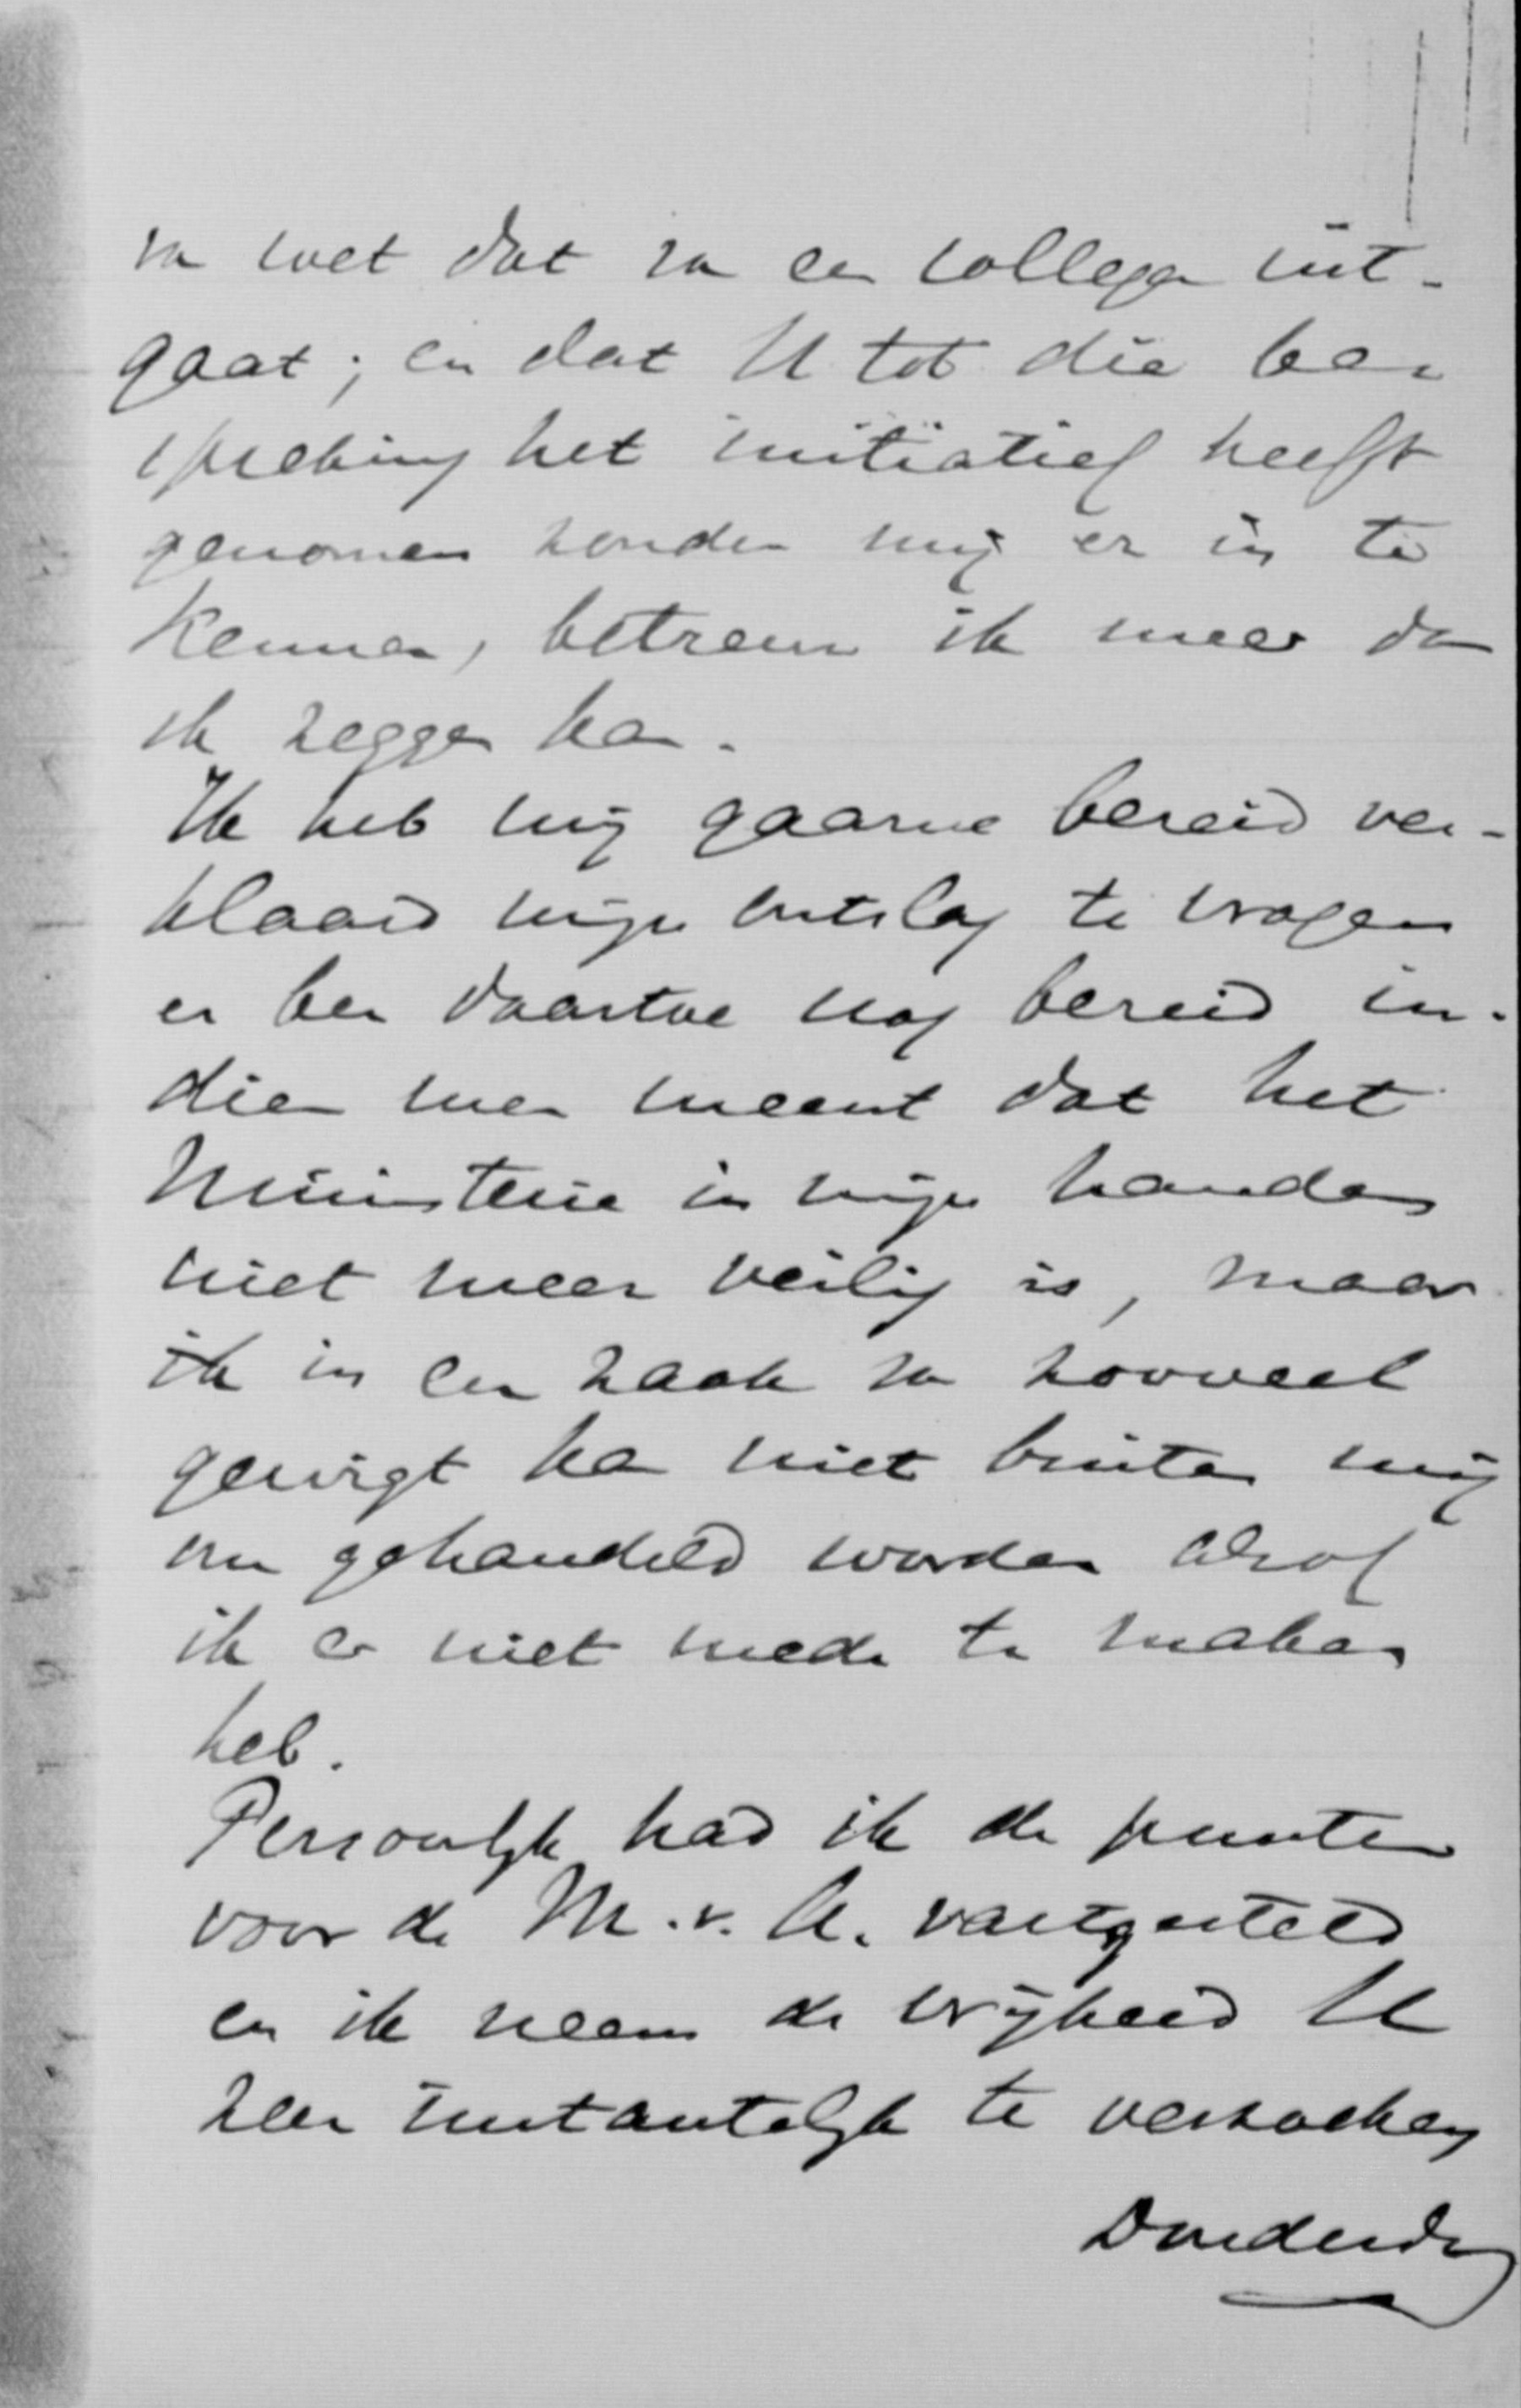 van wet dat van een collega uit-
gaat; en dat U tot die be-
spreking het initiatief heeft
genomen zonder mij er in te
kennen, betreur ik meer dan
ik zeggen kan.
Ik heb mij gaarne bereid ver-
klaard mijn ontslag te vragen
en ben daartoe nog bereid in-
dien men meent dat het
Ministerie in mijn handen
niet meer veilig is, maar
ik in een zaak van zooveel
gewigt kan niet buiten mij
om gehandeld worden alsof
ik er niet mede te maken
heb.
Persoonlijk had ik de punten
voor de M.v.A. vastgesteld
en ik neem de vrijheid U
zeer instantelijk te verzoeken
Donderdag